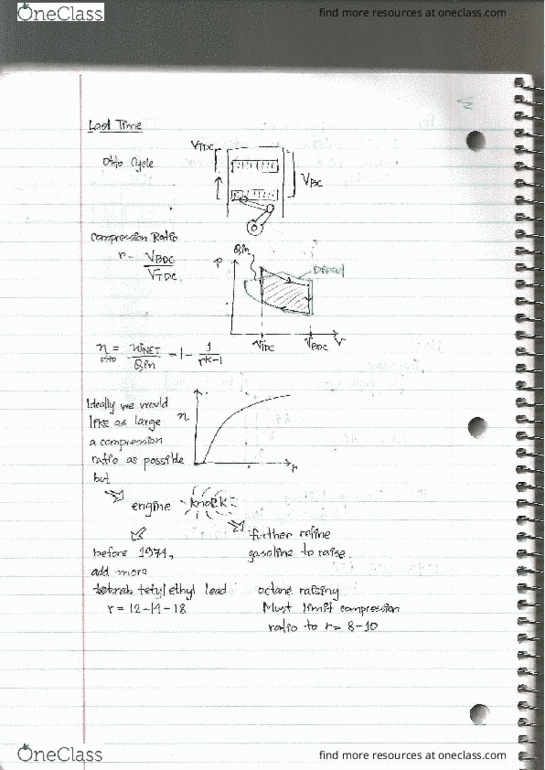 OneClass
find more resources at oneclass.com
Last Time
Otto Cycle
VTDC
VBDC
Compression Ratio
r = VBDC / VTDC
P
Qin
Diesel
VTDC
VBDC
V
n otto = WNET / Qin = 1 - 1 / r^k-1
Ideally we would
like as large
a compression
ratio as possible
but
n
r
engine knock
before 1974,
add more
tetyl ethyl lead
r = 12-14-18
further refine
gasoline to raise
octane raising
Must limit compression
ratio to r = 8-10
OneClass
find more resources at oneclass.com